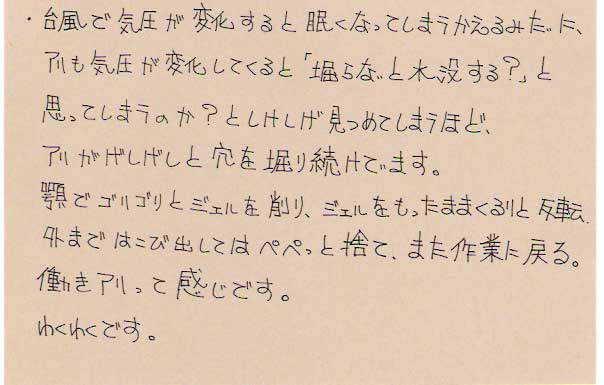 ・台風で気圧が変化すると眠くなってしまうかえるみたいに、
アリも気圧が変化してくると「掘らないと水没する?」と
思ってしまうのか?としげしげ見つめてしまうほど、
アリがげしげしと穴を掘り続けています。
顎でゴリゴリとジェルを削り、ジェルをもったままくるりと反転、
外まではこび出してはペペっと捨て、また作業に戻る。
働きアリって感じです。
わくわくです。